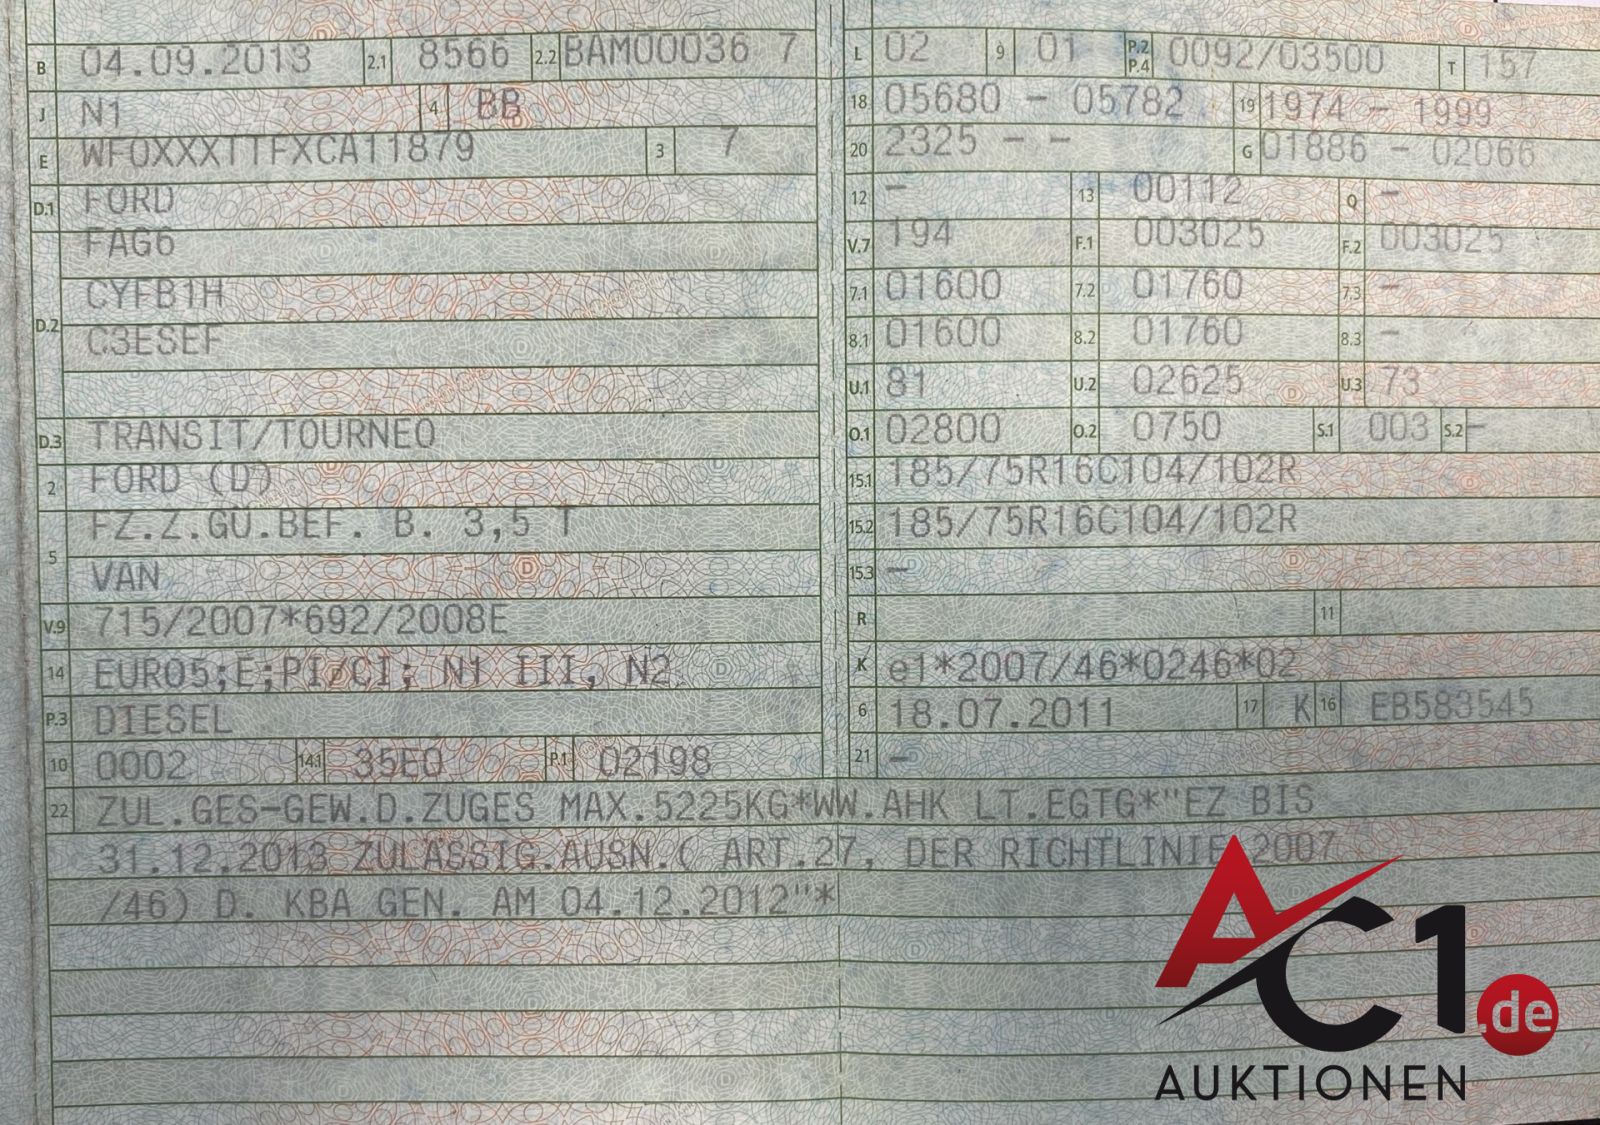 B 04.09.2013 2.1 8566 2.2 BAM00036 7
J N1 4 BB
E WF0XXXTTFXCA11879 3 7
D.1 FORD
FAG6
D.2 CYFB1H
C3ESEF
D.3 TRANSIT/TOURNEO
2 FORD (D)
FZ.Z.GÜ.BEF. B. 3,5 T
5 VAN
V.9 715/2007*692/2008E
14 EURO5;E;PI/CI; N1 III, N2
P.3 DIESEL
10 0002 14.1 35E0 P.1 02198
L 02 9 01 P.2 P.4 0092/03500 T 157
18 05680 - 05782 19 1974 - 1999
20 2325 - - G 01886 - 02066
12 - 13 00112 Q -
V.7 194 F.1 003025 F.2 003025
7.1 01600 7.2 01760 7.3 -
8.1 01600 8.2 01760 8.3 -
U.1 81 U.2 02625 U.3 73
O.1 02800 O.2 0750 S.1 003 S.2 -
15.1 185/75R16C104/102R
15.2 185/75R16C104/102R
15.3 -
R 11
K e1*2007/46*0246*02
6 18.07.2011 17 K 16 EB583545
21 -
22 ZUL.GES-GEW.D.ZUGES MAX.5225KG*WW.AHK LT.EGTG*"EZ BIS
31.12.2013 ZULÄSSIG.AUSN.( ART.27, DER RICHTLINIE 2007
/46) D. KBA GEN. AM 04.12.2012"*
AC1.de
AUKTIONEN